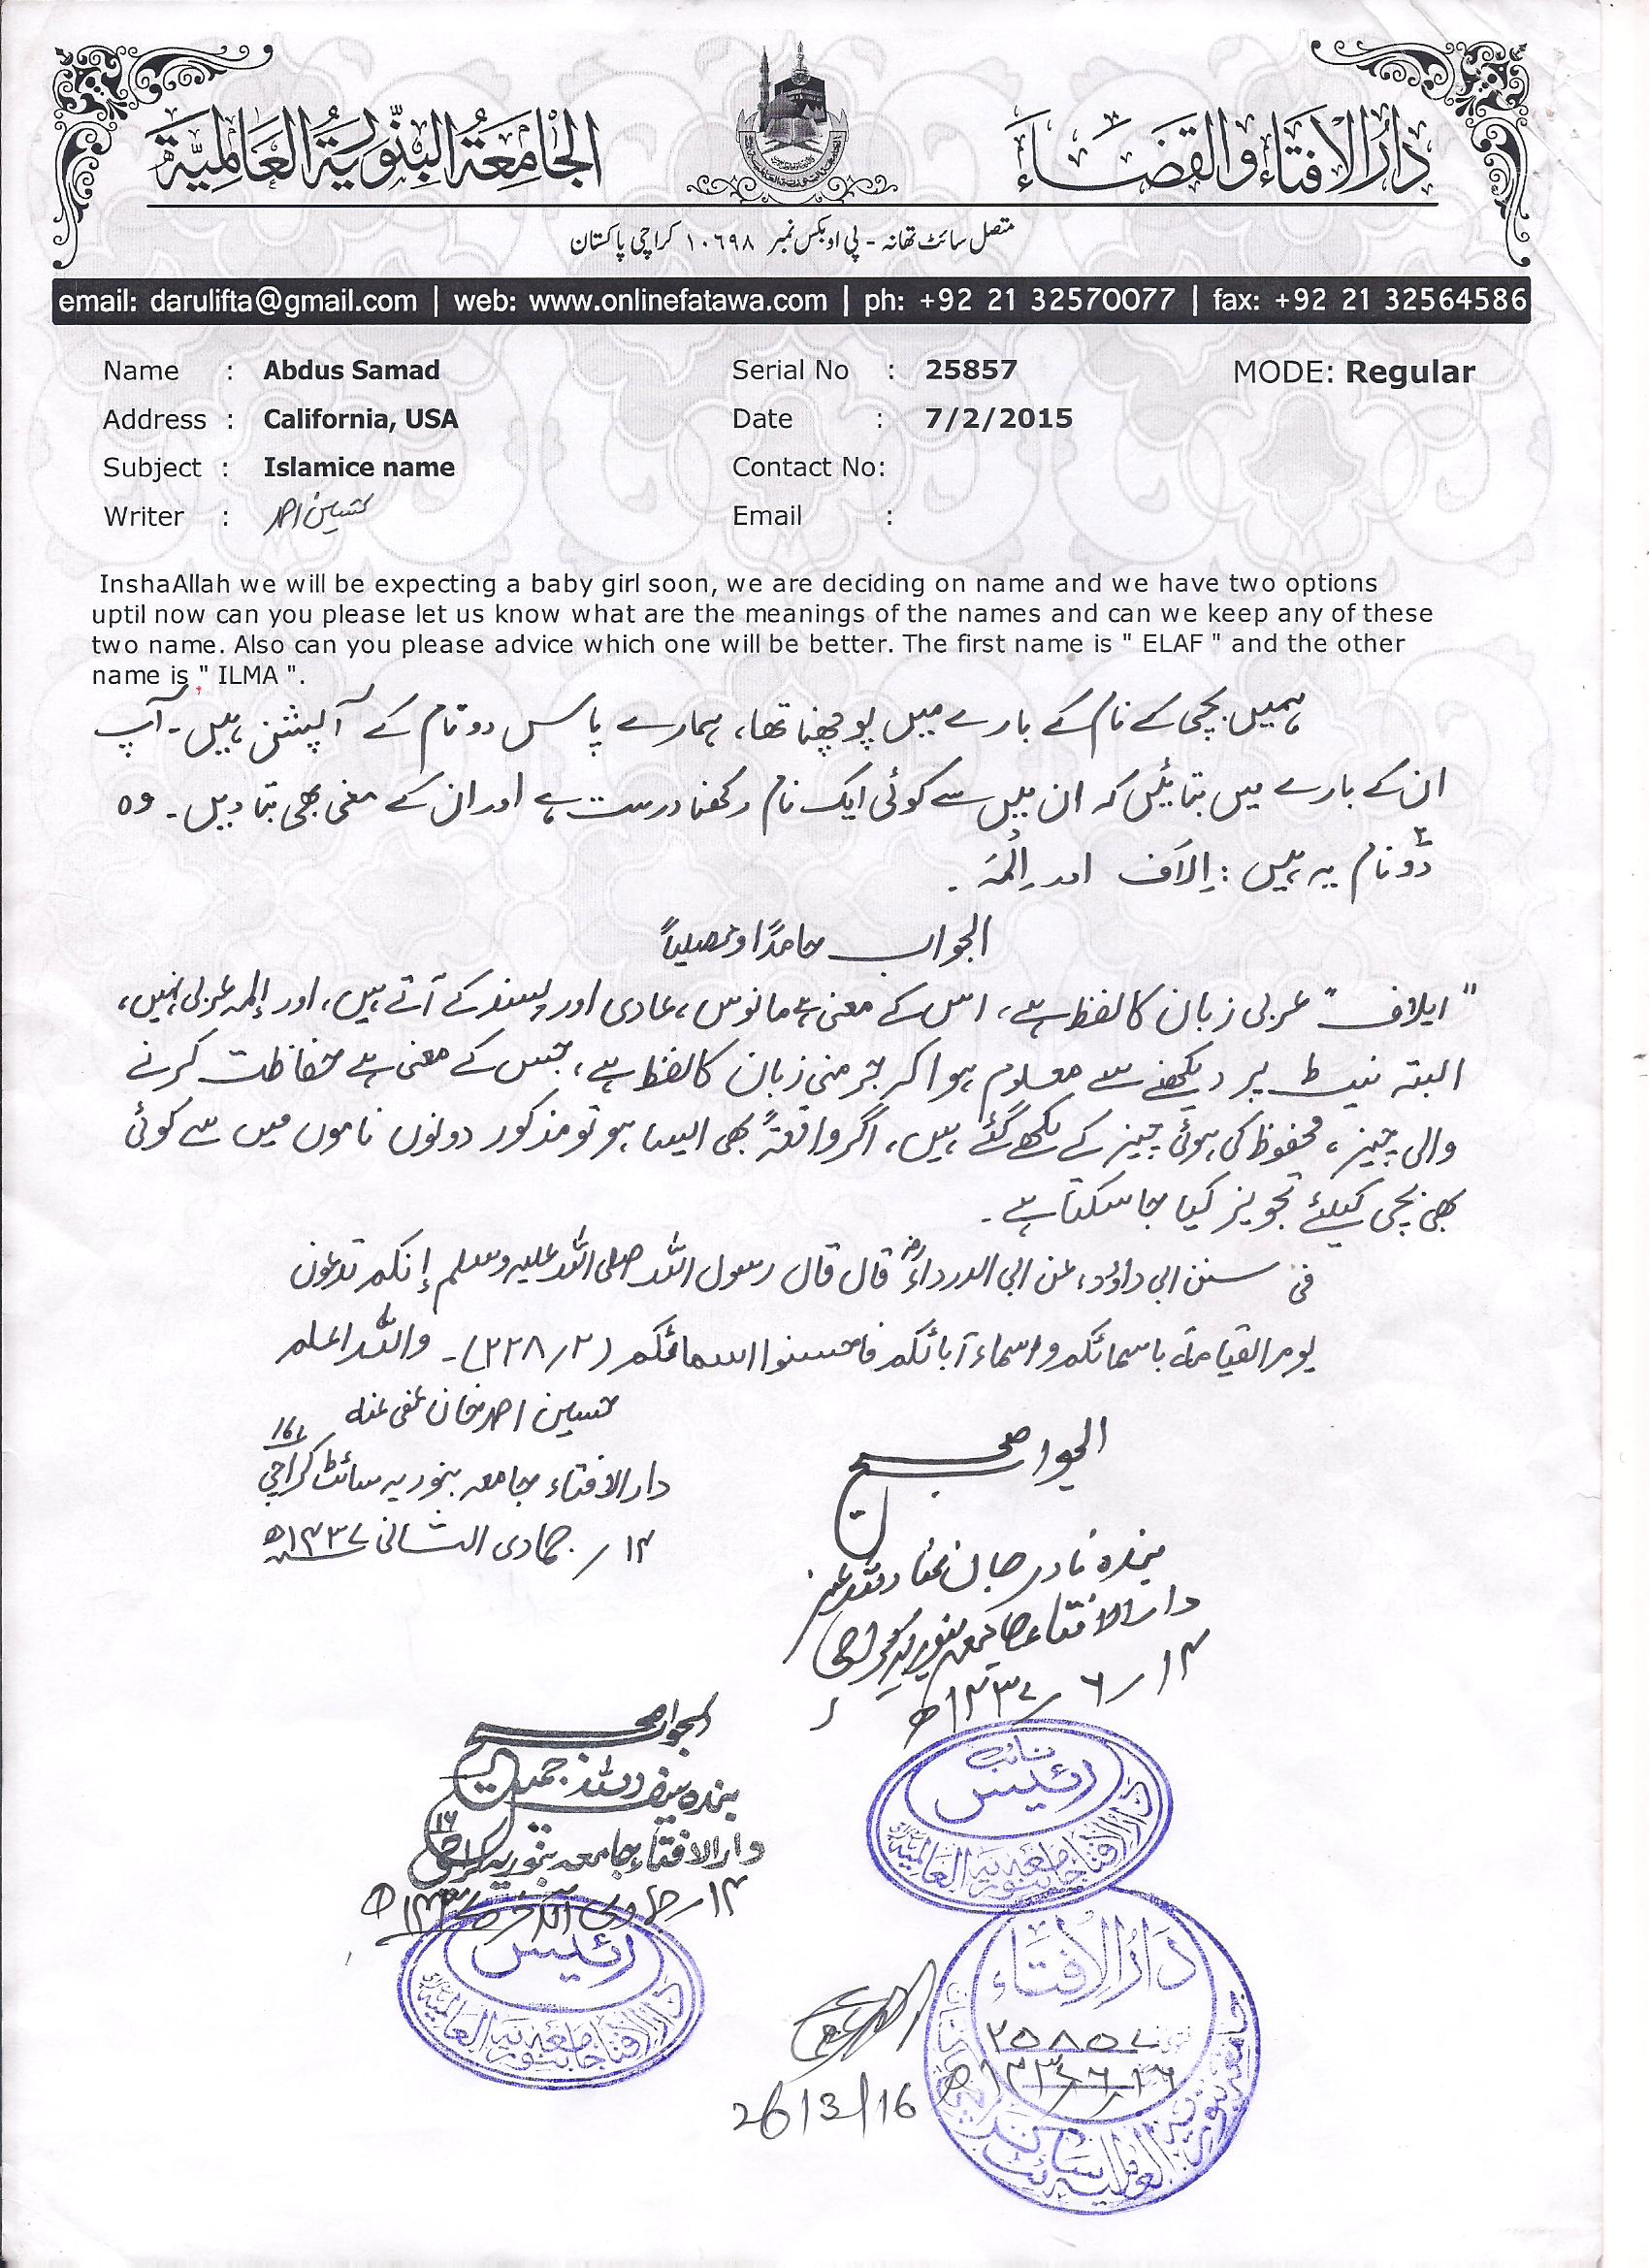 دَارُ الإفتَاء وَالقَضَاء
الجَامِعَةُ البِنّورِيَةُ العَالَمِيَّة
متصل سائٹ تھانہ - پی او بکس نمبر ۱۰۶۹۸ کراچی پاکستان
email: darulifta@gmail.com | web: www.onlinefatawa.com | ph: +92 21 32570077 | fax: +92 21 32564586
Name : Abdus Samad Serial No : 25857 MODE: Regular
Address : California, USA Date : 7/2/2015
Subject : Islamice name Contact No:
Writer : حسین احمد Email :
InshaAllah we will be expecting a baby girl soon, we are deciding on name and we have two options
uptil now can you please let us know what are the meanings of the names and can we keep any of these
two name. Also can you please advice which one will be better. The first name is " ELAF " and the other
name is " ILMA ".
ہمیں بچی کے نام کے بارے میں پوچھنا تھا، ہمارے پاس دو نام کے آپشن ہیں۔ آپ
ان کے بارے میں بتائیں کہ ان میں سے کوئی ایک نام رکھنا درست ہے اور ان کے معنی بھی بتا دیں۔ وہ
دو نام یہ ہیں : اِلاَف اور اِلْمَہ ۔
الجواب حامدًا ومصلیاً
"ایلاف" عربی زبان کا لفظ ہے، اس کے معنی ہے مانوس، عادی اور پسند کے آتے ہیں، اور اِلمہ عربی نہیں،
البتہ نیٹ پر دیکھنے سے معلوم ہوا کہ جرمنی زبان کا لفظ ہے، جس کے معنی ہے حفاظت کرنے
والی چیز، محفوظ کی ہوئی چیز کے لکھے گئے ہیں، اگر واقعۃً بھی ایسا ہو تو مذکور دونوں ناموں میں سے کوئی
بھی بچی کیلئے تجویز کیا جا سکتا ہے ۔
فی سنن ابی داؤد: عن ابی الدرداءؓ قال قال رسول اللہ صلی اللہ علیہ وسلم إنکم تدعون
یوم القیامة باسمائکم واسماء آبائکم فاحسنوا اسمائکم (۲/۳۲۸)۔ واللہ اعلم
حسین احمد خان عفی عنہ
دار الافتاء جامعہ بنوریہ سائٹ کراچی
۱۴/ جمادی الثانی ۱۴۳۷ھ
الجواب صحیح
بندہ نادر جان عفا اللہ عنہ
دار الافتاء جامعہ بنوریہ کراچی
۱۴/۶/۱۴۳۷ھ
الجواب صحیح
بندہ سیف اللہ جمیل
دار الافتاء جامعہ بنوریہ کراچی
نائب
رئیس
دار الافتاء جامعہ بنوریہ العالمیہ
رئیس
دار الافتاء جامعہ بنوریہ العالمیہ
دَارُ الإفتَاء
۲۵۸۵۷
26/3/16